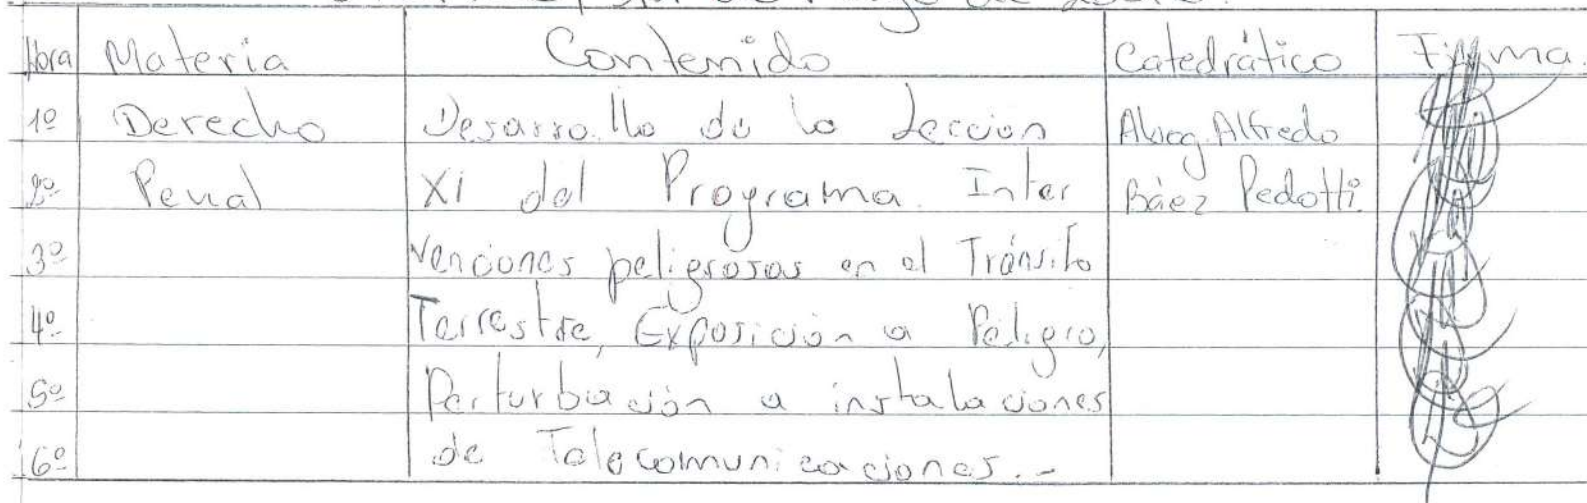 Hora Materia Contenido Catedrático Firma.
1º Derecho Desarrollo de la Leccion Abog. Alfredo
2º Penal XI del Programa. Inter Báez Pedotti.
3º venciones peligrosas en el Tránsito
4º Terrestre, Exposición a Peligro,
5º Perturbación a instalaciones
6º de Telecomunicaciones.-